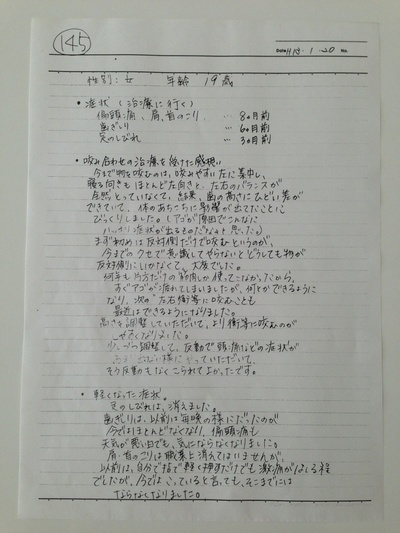 145
DATE H18・1・20 No.
性別：女　年齢 19歳
・症状（治療に行く）
偏頭痛、肩、首のこり … 8ヶ月前
歯ぎしり … 6ヶ月前
足のしびれ … 3ヶ月前
・咬み合わせの治療を受けた感想
今まで物を咬むのは、咬みやすい左に集中し、
寝る向きもほとんど左向きと、左右のバランスが
全然とっていなくて、結果、歯の高さにひどい差が
できていて、体のあちこちに影響が出てたことに
びっくりしました。（アゴが原因でこんなに
ハッキリ症状が出るものだなぁと思った）
まず初めは反対側だけで咬むというのが、
今までのクセで意識してやらないとどうしても物が
反対側にいかなくて、大変でした。
何年も片方だけの筋肉しか使ってこなかったから、
すぐアゴが疲れてしまいましたが、何とかできるように
なり、次の"左右均等に咬むことも
最近はできるようになりました。
高さを調整していただいて、より均等に咬むのが
しやすくなりました。
少しづつ調整して、反動で頭痛などの症状が
様にやっていただいて、
そう反動もなくこられてよかったです。
・軽くなった症状。
足のしびれは、消えました。
歯ぎしりは、以前は毎晩の様にだったのが
今ではほとんどなくなり、偏頭痛も
天気が悪い日でも、気にならなくなりました。
肩・首のこりは職業上消えてはいませんが、
以前は、自分で指で軽く押すだけでも激痛がはしる程
でしたが、今ではこっていると言っても、そこまでには
ならなくなりました。